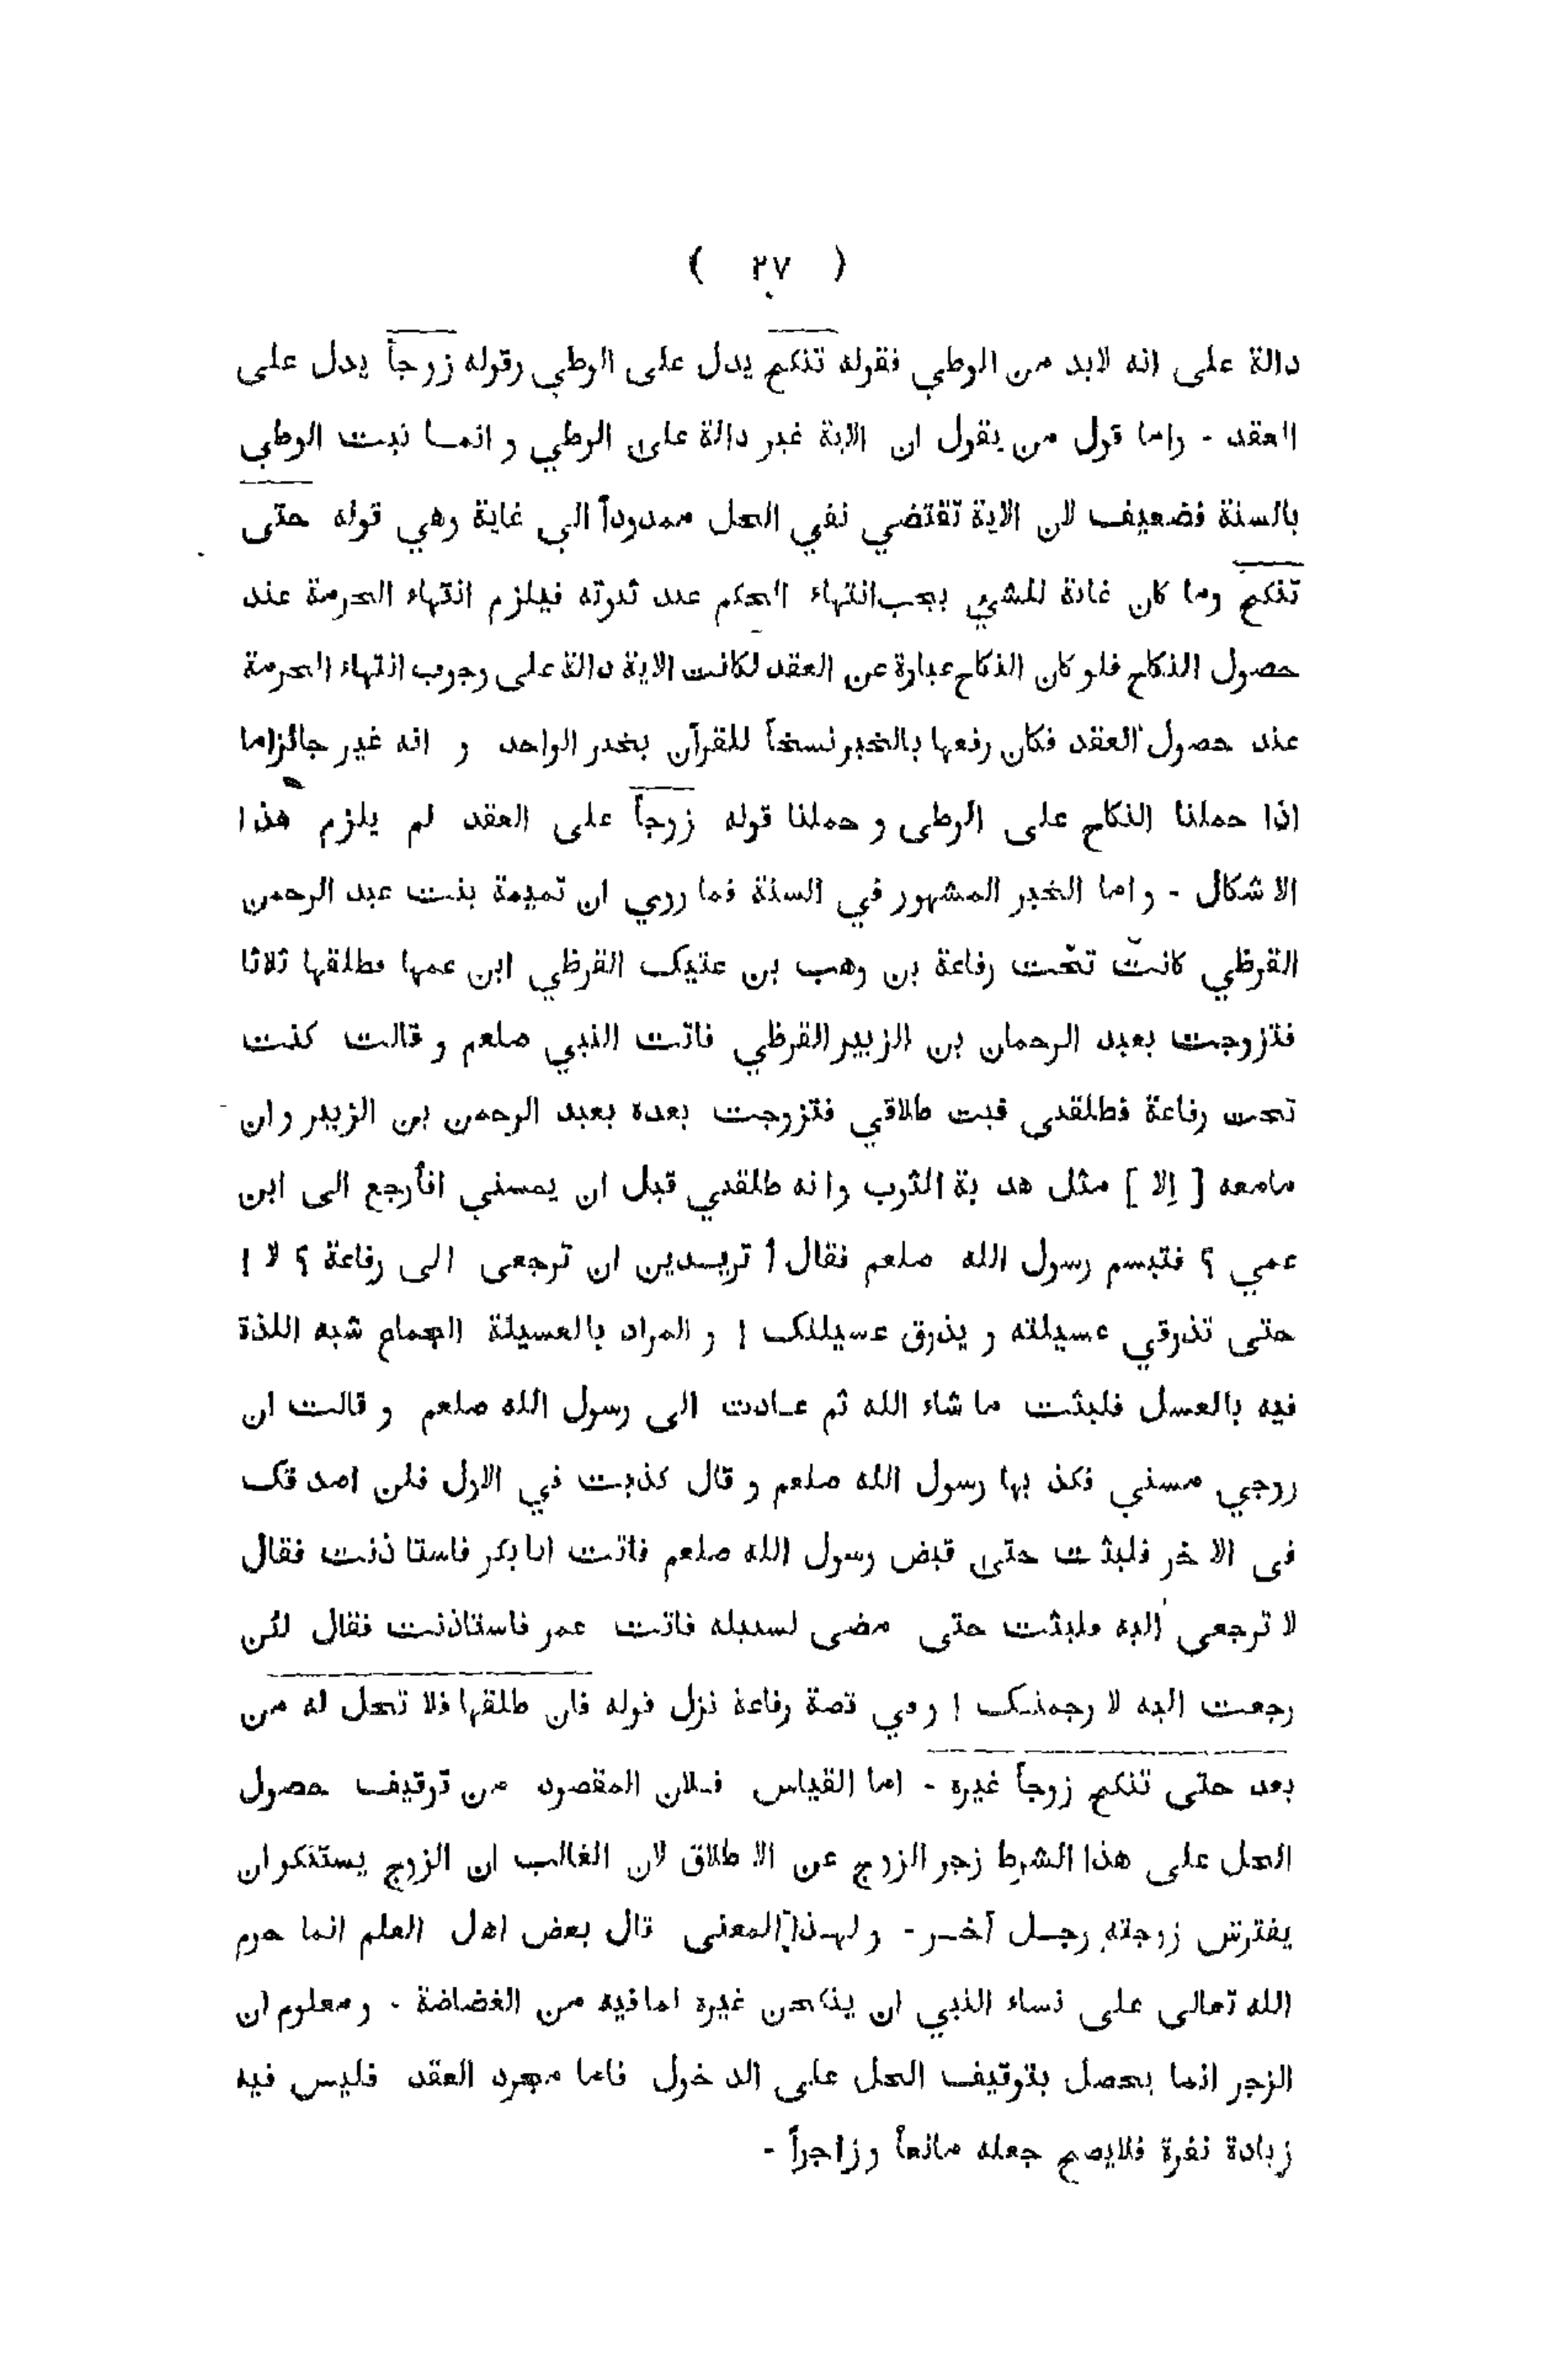 ( ٢٧ )
دالة على انه لابد من الوطي فقوله تنكح يدل على الوطي وقوله زوجاً يدل على
العقد - واما قول من يقول ان الاية غير دالة على الوطي و انمـا ثبت الوطي
بالسنة فضعيف لان الاية تقتضي نفي الحل ممدوداً الي غاية وهي قوله حتى
تنكح وما كان غاية للشي يجب انتهاء الحكم عند ثبوته فيلزم انتهاء الحرمة عند
حصول النكاح فلو كان النكاح عبارة عن العقد لكانت الاية دالة على وجوب انتهاء الحرمة
عند حصول العقد فكان رفعها بالخبر نسخاً للقرآن بخبر الواحد و انه غير جائز اما
اذا حملنا النكاح على الوطى و حملنا قوله زوجاً على العقد لم يلزم هذا
الاشكال - واما الخبر المشهور في السنة فما روي ان تميمة بنت عبد الرحمن
القرظي كانت تحت رفاعة بن وهب بن عتيك القرظي ابن عمها فطلقها ثلاثا
فتزوجت بعبد الرحمان بن الزبير القرظي فاتت النبي صلعم و قالت كنت
تحت رفاعة فطلقني فبت طلاقي فتزوجت بعده بعبد الرحمن بن الزبير و ان
مامعه [ اِلا ] مثل هد بة الثوب وانه طلقني قبل ان يمسني افأرجع الى ابن
عمي ؟ فتبسم رسول الله صلعم فقال أ تريـدين ان ترجعى الى رفاعة ؟ لا !
حتى تذوقي عسيلته و يذوق عسيلتك ! و المراد بالعسيلة الجماع شبه اللذة
فيه بالعسل فلبثت ما شاء الله ثم عـادت الى رسول الله صلعم و قالت ان
زوجي مسني فكذ بها رسول الله صلعم و قال كذبت في الاول فلن اصد قك
فى الا خر فلبثت حتى قبض رسول الله صلعم فاتت ابا بكر فاستا ذنت فقال
لا ترجعى اليه فلبثت حتى مضى لسبيله فاتت عمر فاستاذنت فقال لئن
رجعت اليه لا رجمنـك ! و في قصة رفاعة نزل قوله فان طلقها فلا تحل له من
بعد حتى تنكح زوجاً غيره - اما القياس فـلان المقصود من توقيف حصول
الحل على هذا الشرط زجر الزوج عن الا طلاق لان الغالب ان الزوج يستنكر ان
يفترش زوجته رجـل آخـر - و لهـذا المعنى قال بعض اهل العلم انما حرم
الله تعالى على نساء النبي ان ينكحن غيره لما فيه من الغضاضة - و معلوم ان
الزجر انما يحصل بتوقيف الحل على الد خول فاما مجرد العقد فليس فيه
زيادة نفرة فلايصح جعله مانعاً و زاجراً -